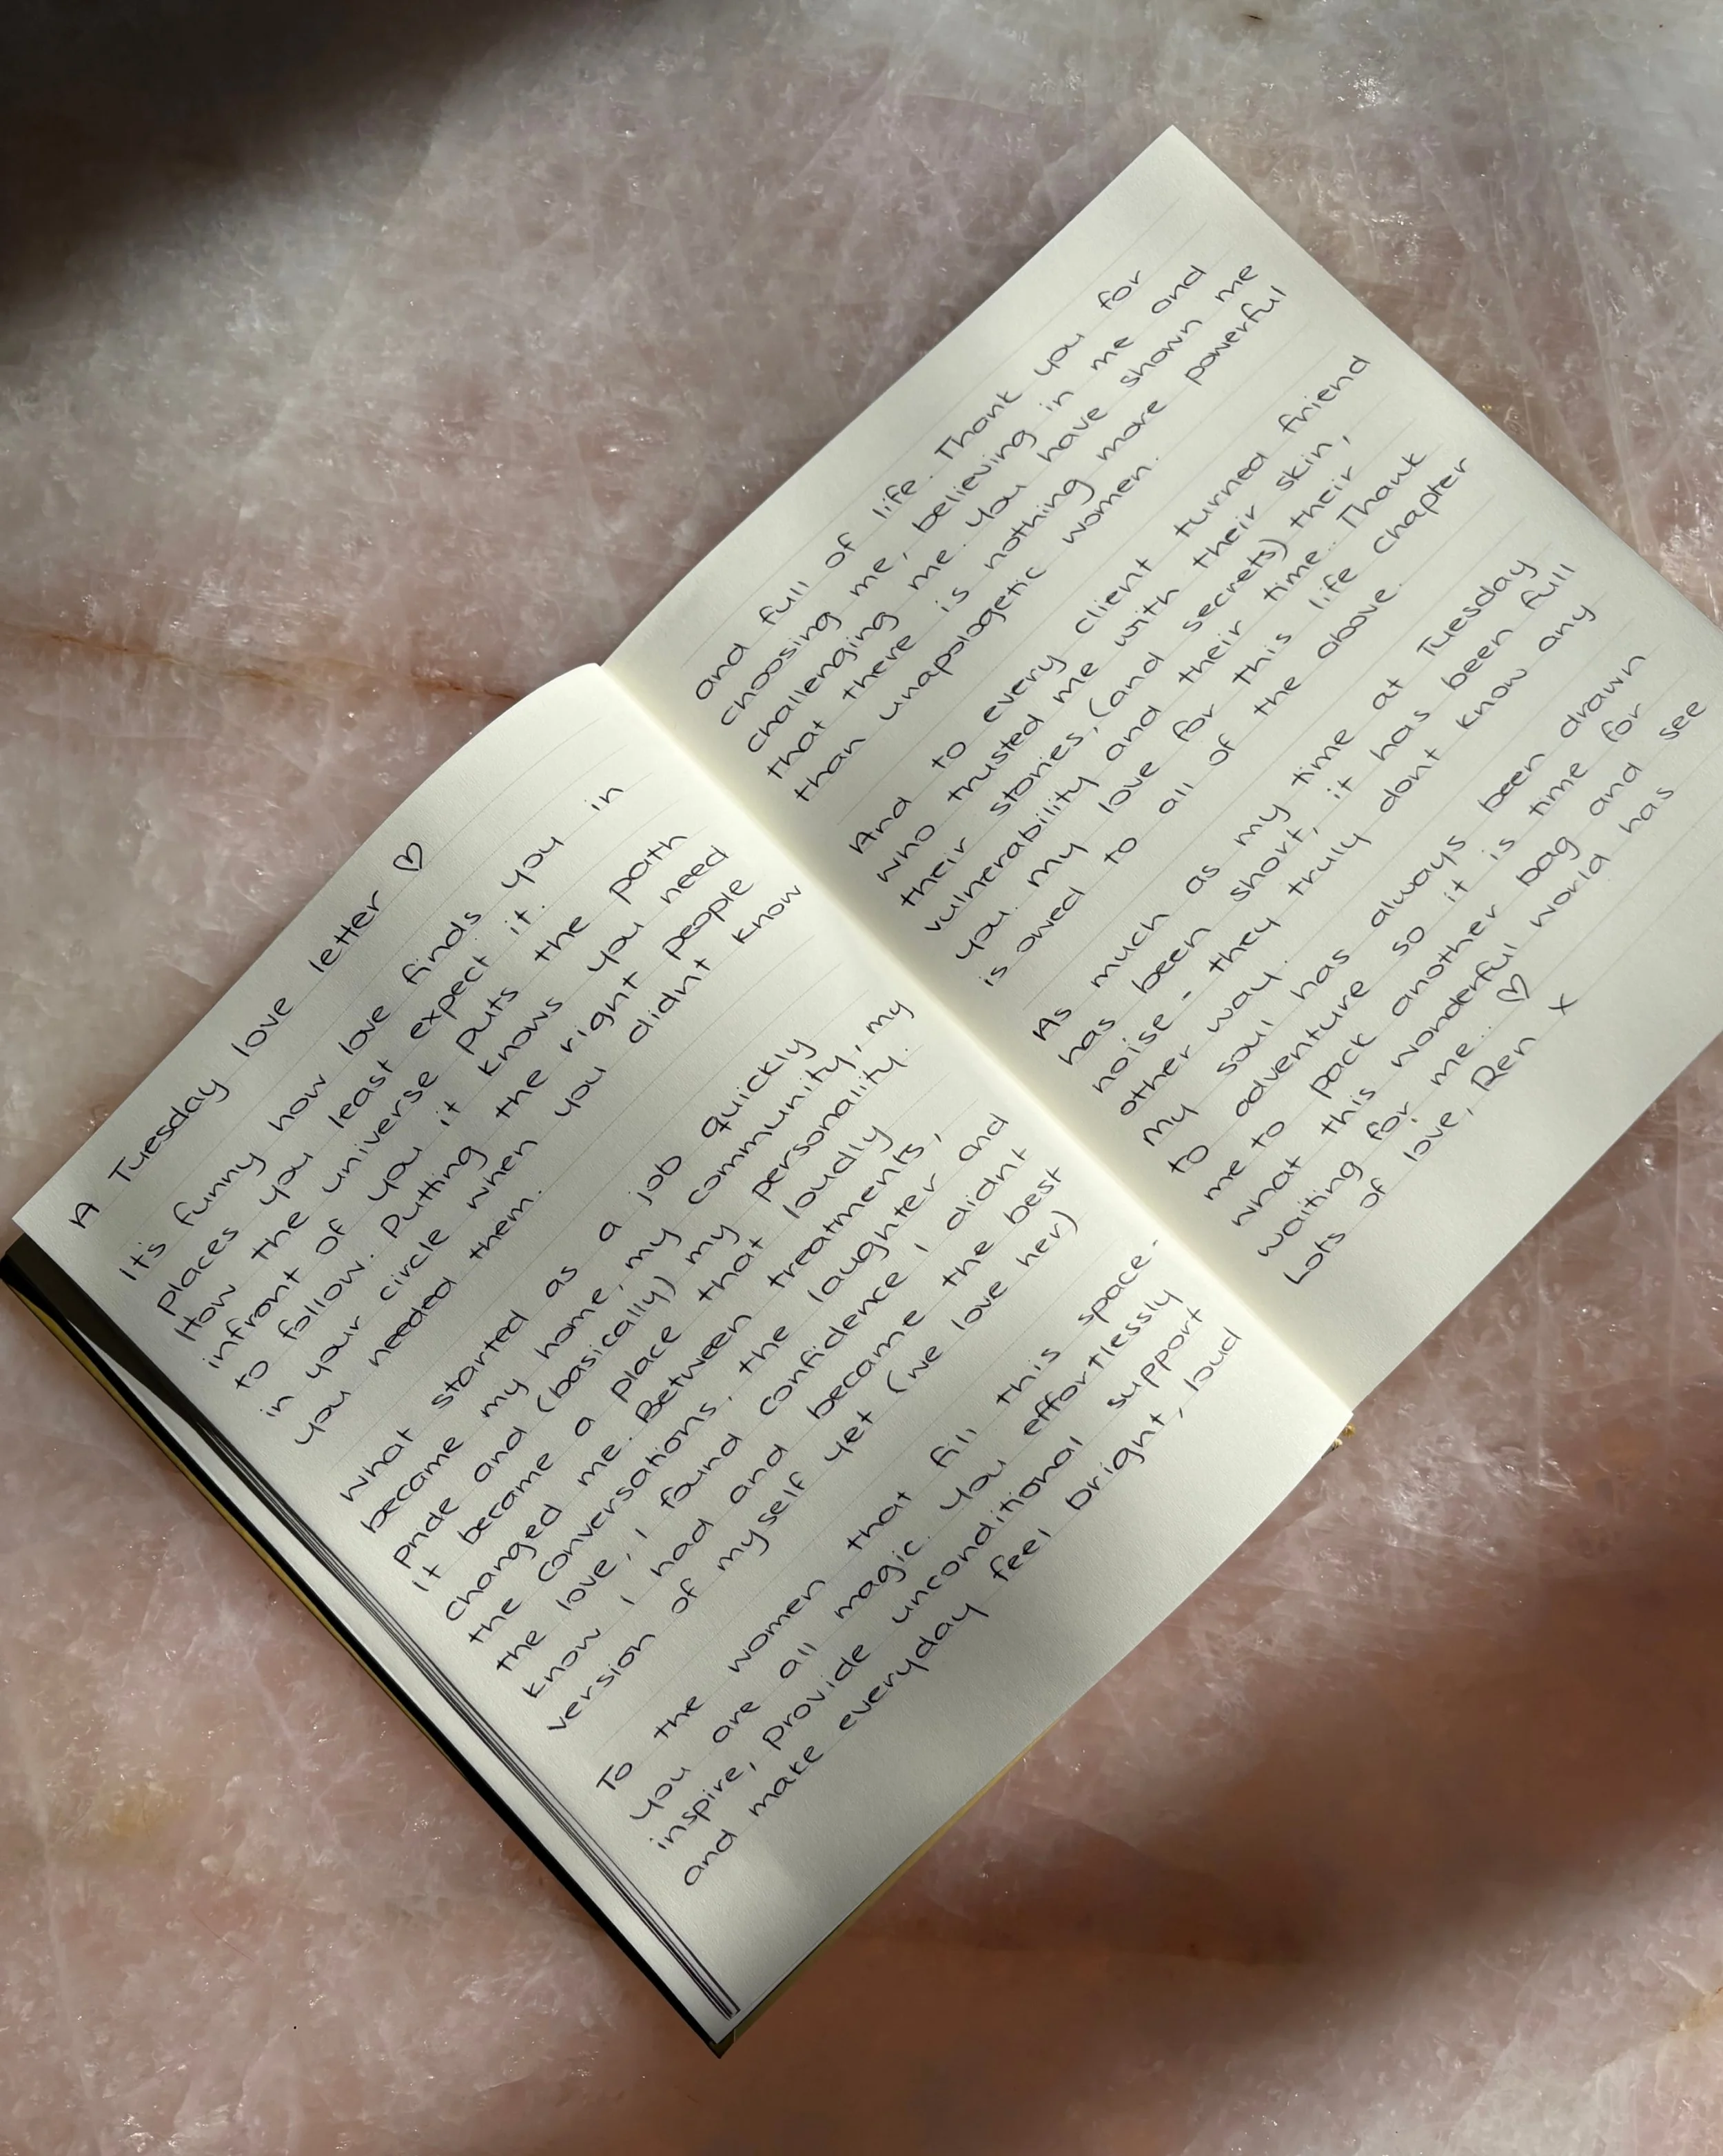 A Tuesday love letter ♡
It's funny how love finds you in
places you least expect it.
How the universe puts the path
infront of you it knows you need
to follow. Putting the right people
in your circle when you didnt know
you needed them.
What started as a job quickly
became my home, my community, my
pride and (basically) my personality.
it became a place that loudly
changed me. Between treatments,
the conversations, the laughter and
the love, I found confidence I didnt
know I had and became the best
version of myself yet (we love her)
To the women that fill this space -
you are all magic. You effortlessly
inspire, provide unconditional support
and make everyday feel bright, loud
and full of life. Thank you for
choosing me, believing in me and
challenging me. You have shown me
that there is nothing more powerful
than unapologetic women.
And to every client turned friend
who trusted me with their skin,
their stories, (and secrets) their
vulnerability and their time. Thank
you. My love for this life chapter
is owed to all of the above.
As much as my time at Tuesday
has been short, it has been full
noise - they truly dont know any
other way.
My soul has always been drawn
to adventure so it is time for
me to pack another bag and see
what this wonderful world has
waiting for me. ♡
Lots of love, Ren x